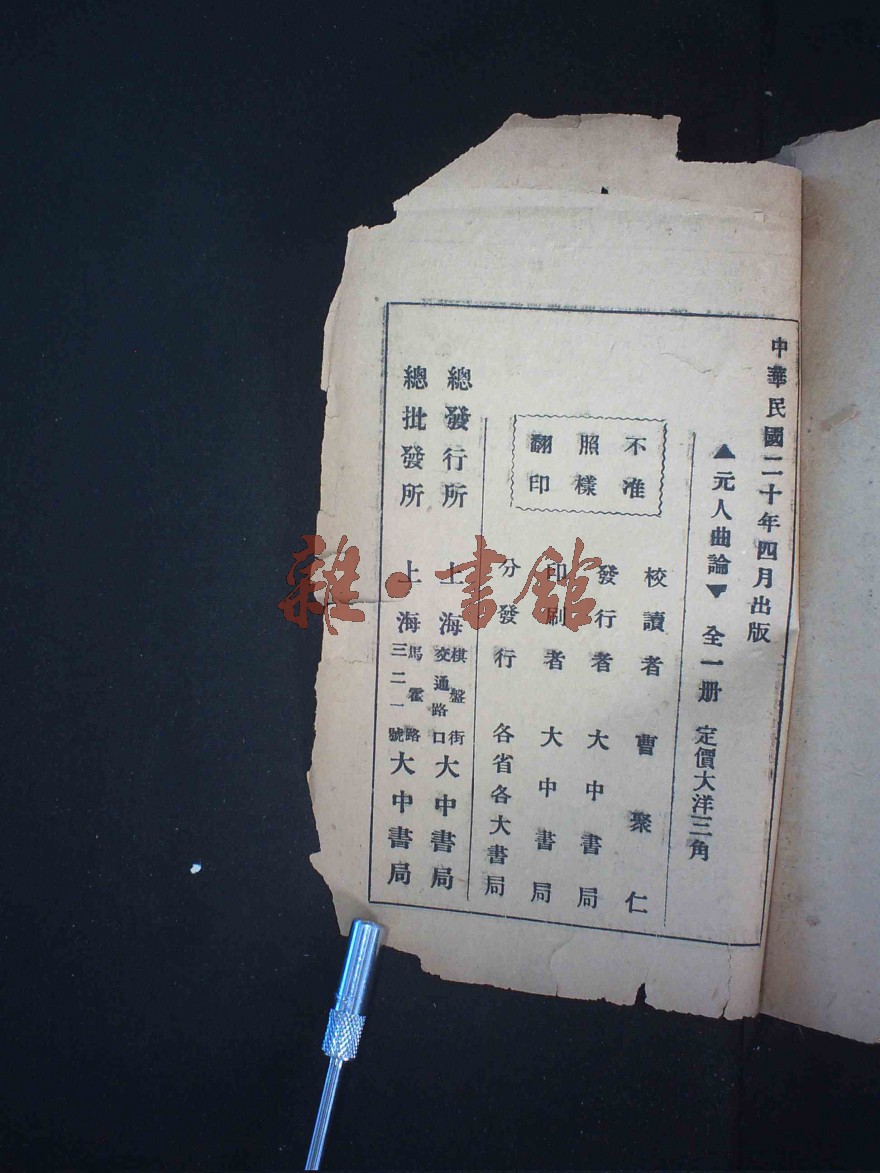 中華民國二十年四月出版
▲元人曲論▼ 全一册 定價大洋三角
不准
照樣
翻印
校讀者 曹聚仁
發行者 大中書局
印刷者 大中書局
分發行 各省各大書局
總發行所 上海棋盤街交通路口大中書局
總批發所 上海馬霍路三二一號大中書局
雜·書館